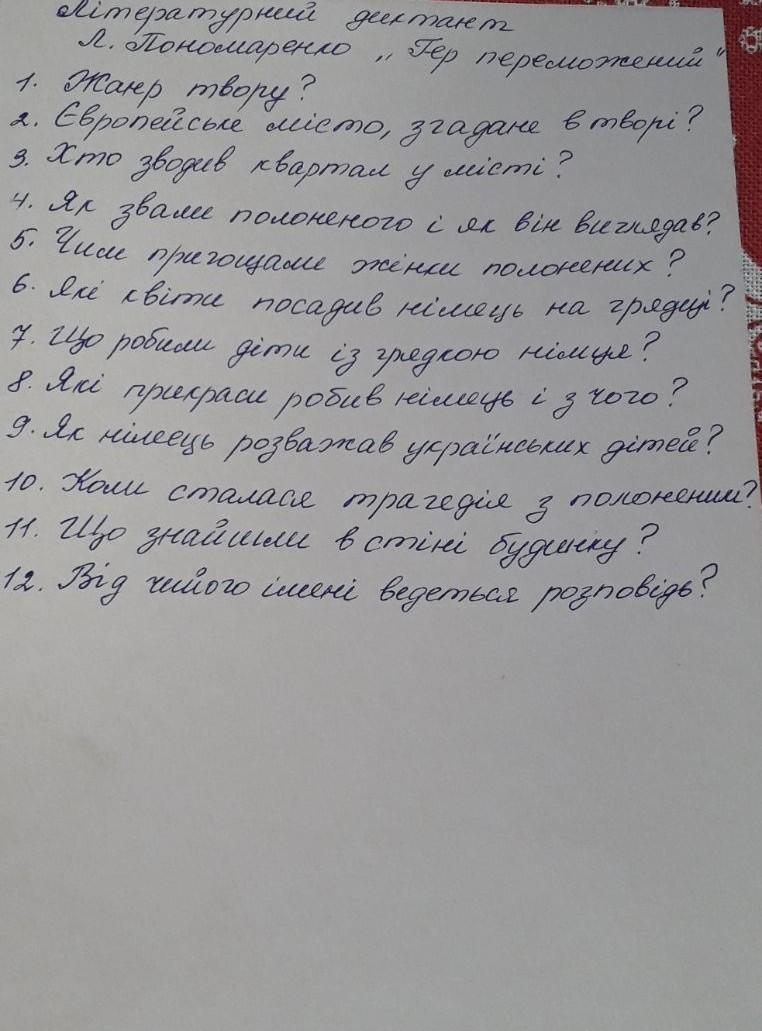 Літературний диктант
Л. Пономаренко „Гер переможений"
1. Жанр твору?
2. Європейське місто, згадане в творі?
3. Хто зводив квартал у місті?
4. Як звали полоненого і як він виглядав?
5. Чим пригощали жінки полонених?
6. Які квіти посадив німець на грядці?
7. Що робили діти із грядкою німця?
8. Які прикраси робив німець і з чого?
9. Як німець розважав українських дітей?
10. Коли сталася трагедія з полоненим?
11. Що знайшли в стіні будинку?
12. Від чийого імені ведеться розповідь?